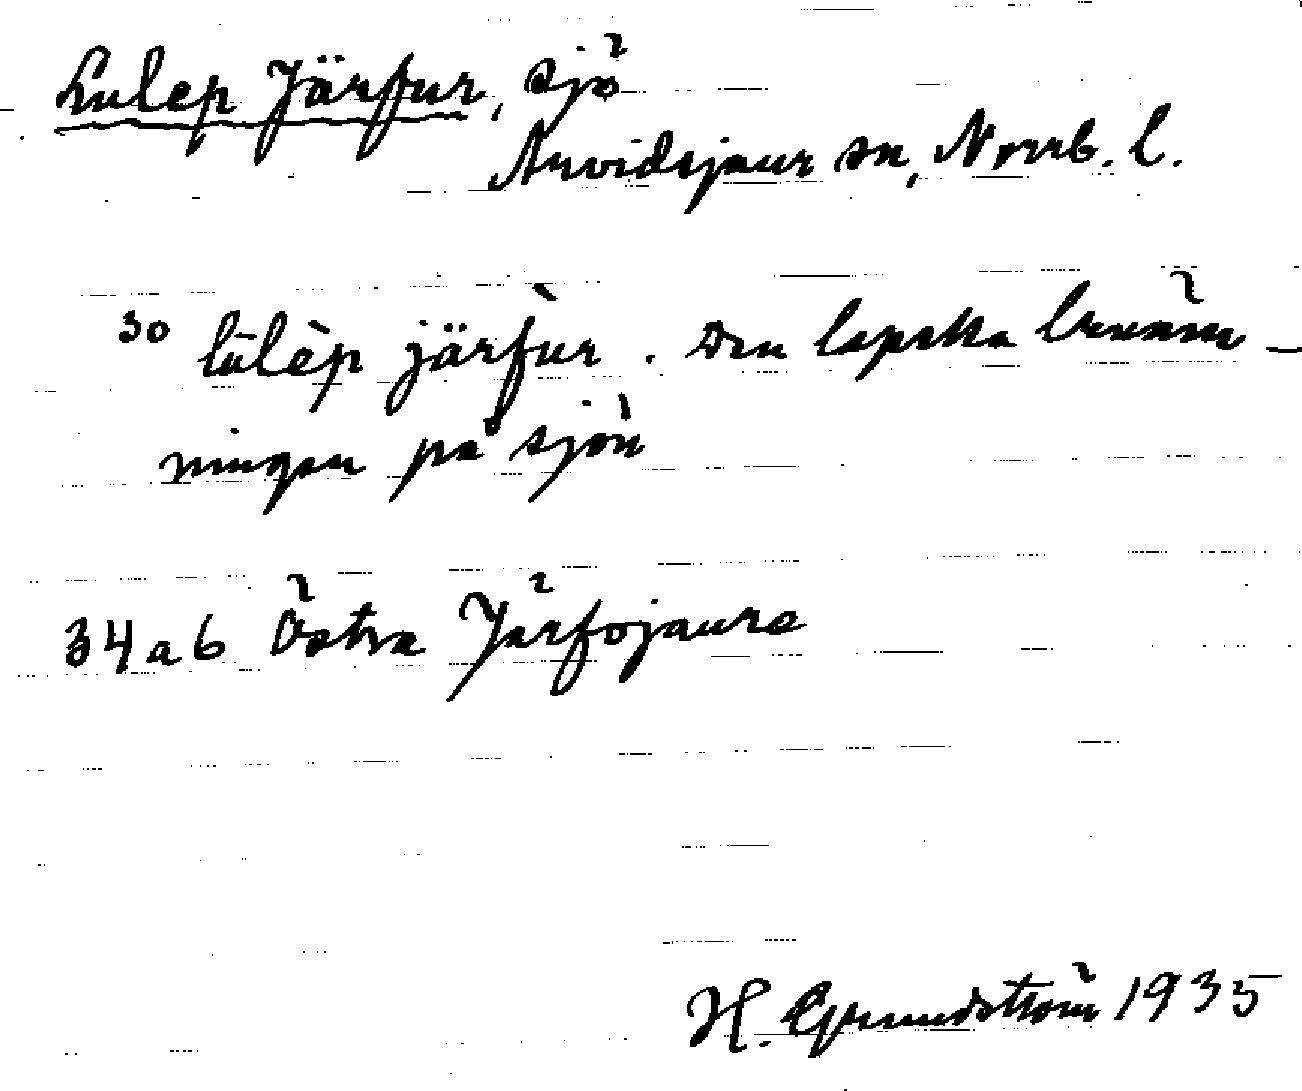 Lulep Järfur, sjö
Arvidsjaur sn, Norrb. l.
30 lūlèp järfùr. Den lapska benäm-
ningen på sjön
34 a 6 Östra Järfojaure
H. Grundström 1935